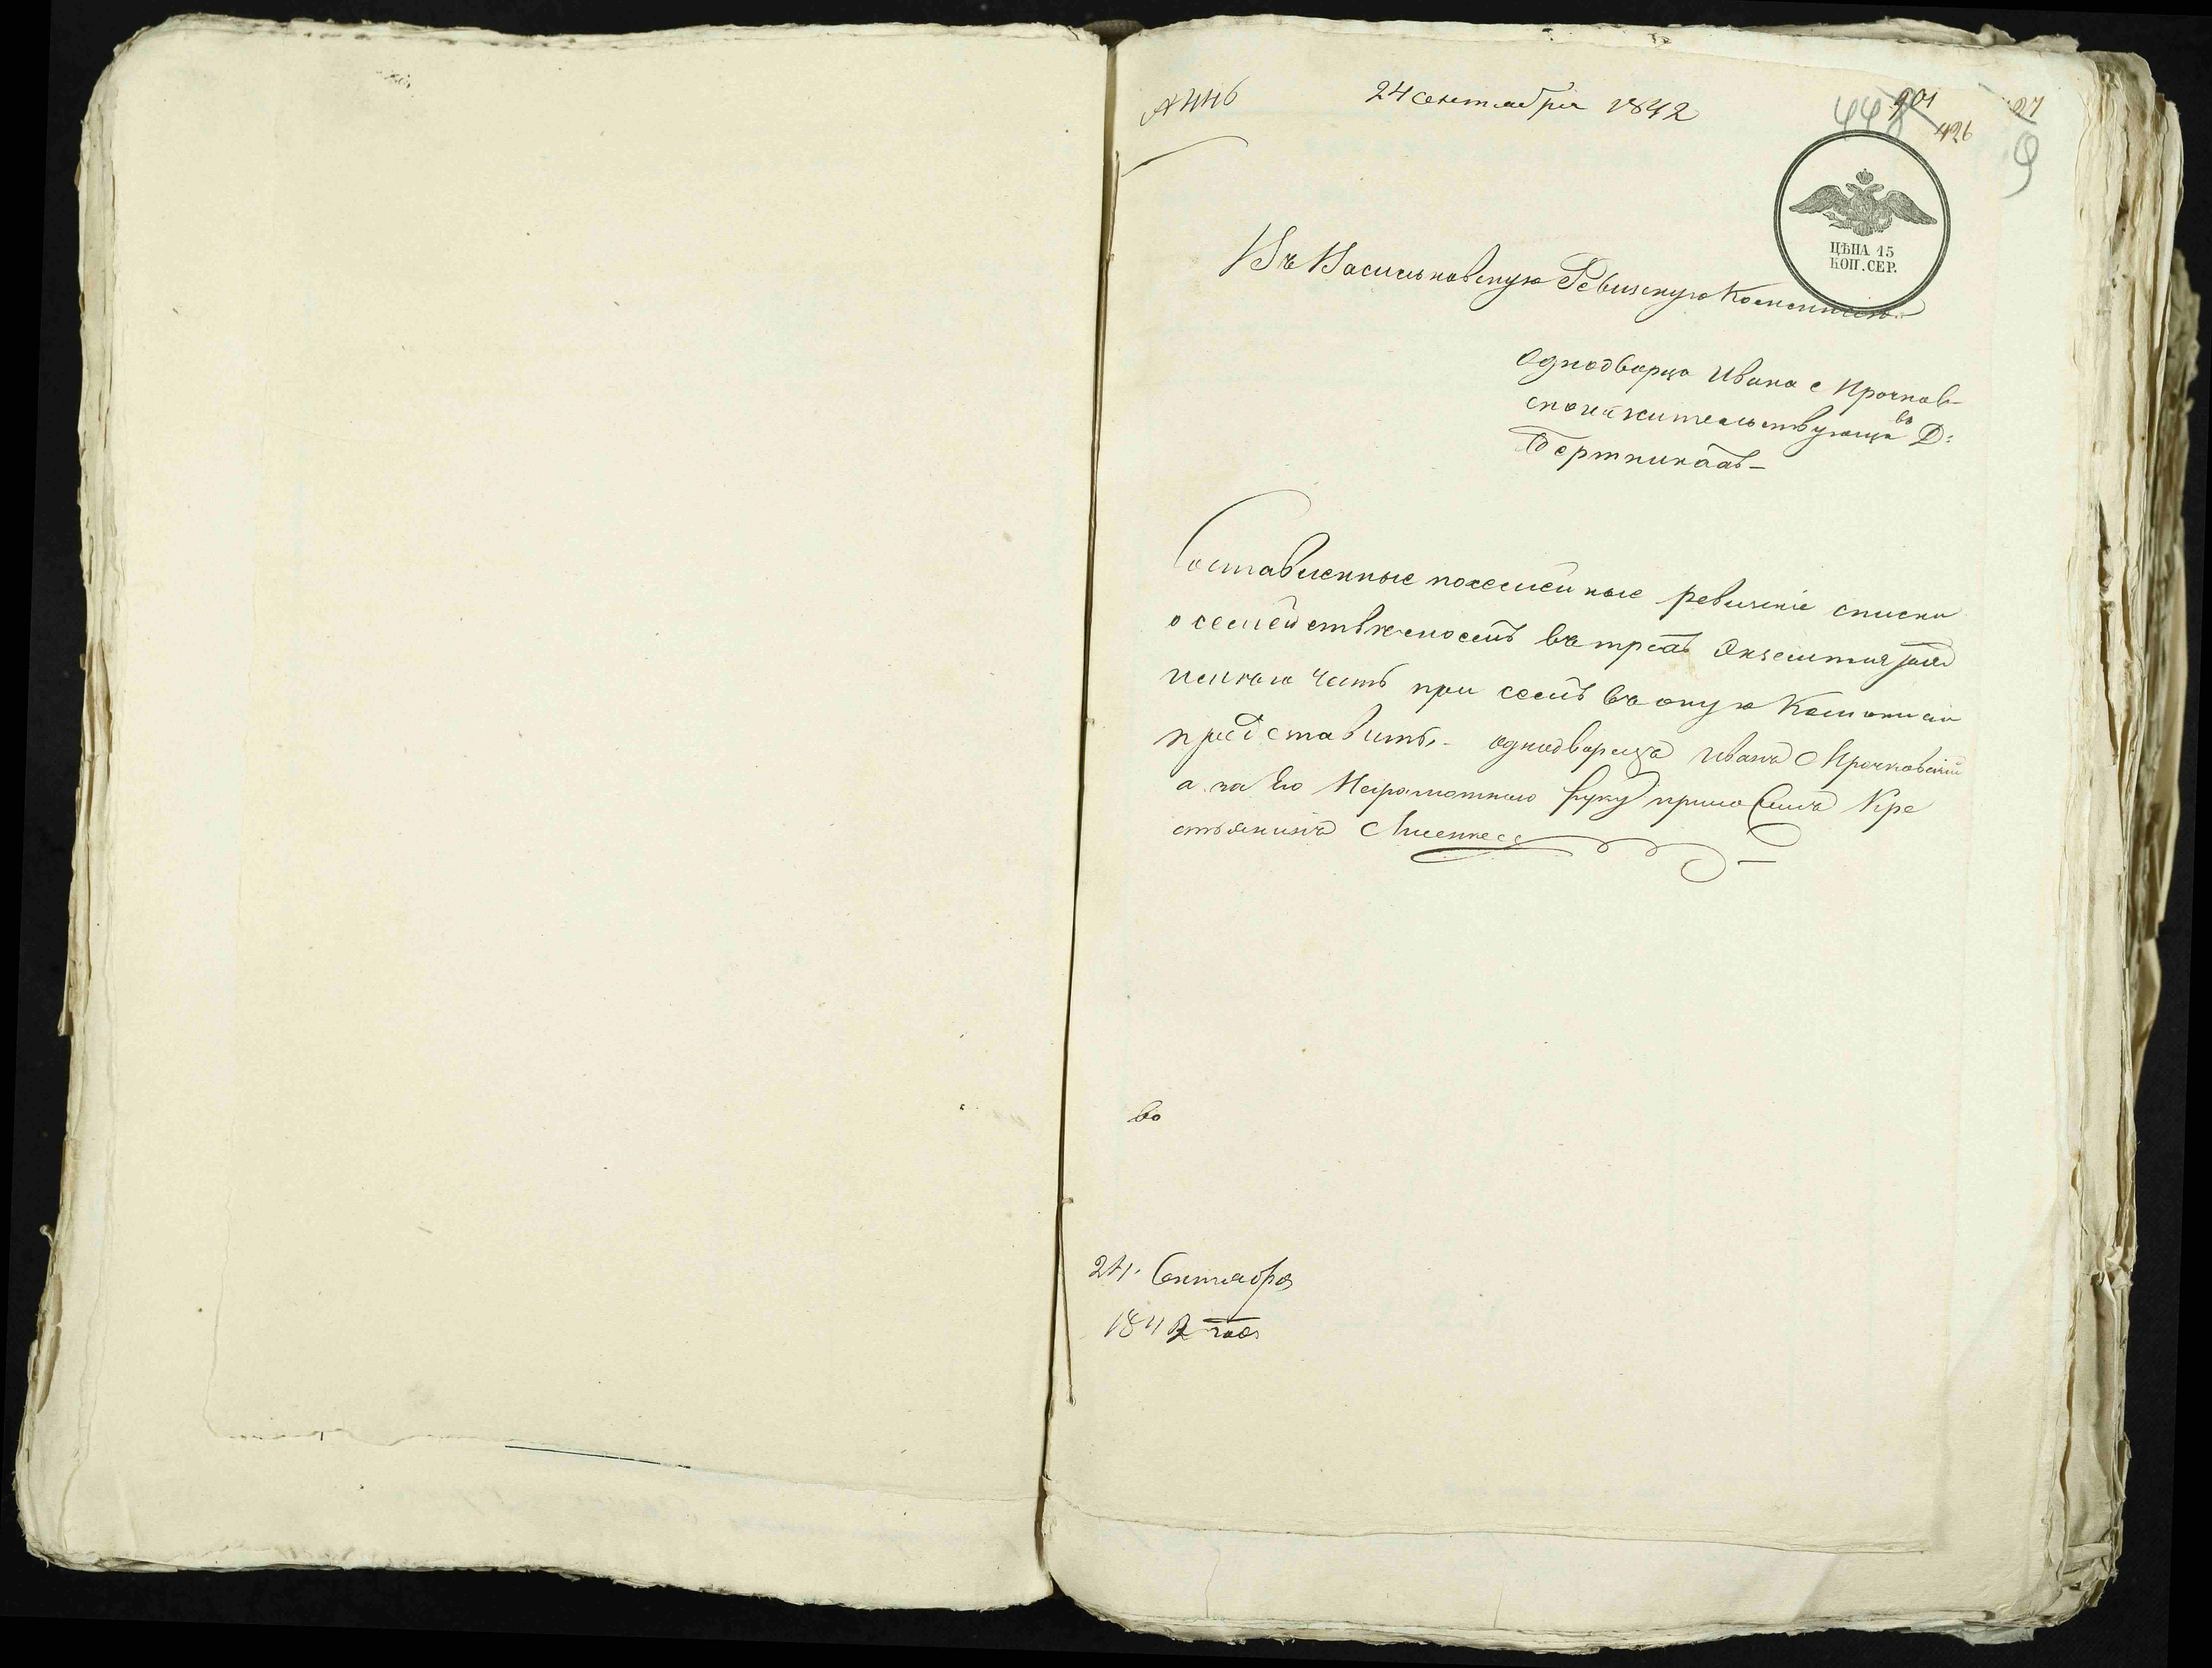 № 446 24 сентября 1842
901
426
27
9
ЦѢНА 15
КОП. СЕР.
Въ Васильковскую Ревизскую Коммисію
Однодворца Ивана Мрочков-
скаго жительствующа во Д:
Составленные посемейные ревизкіе списки
о семействе моемъ въ трехъ Экземплярах
имею честь при семъ въ оную Коммисію
представить. однодворецъ Иванъ Мрочковскій
а за Его Неграмотнаго руку приложилъ Кре
стьянинъ
во
24. Сентября
1842 года